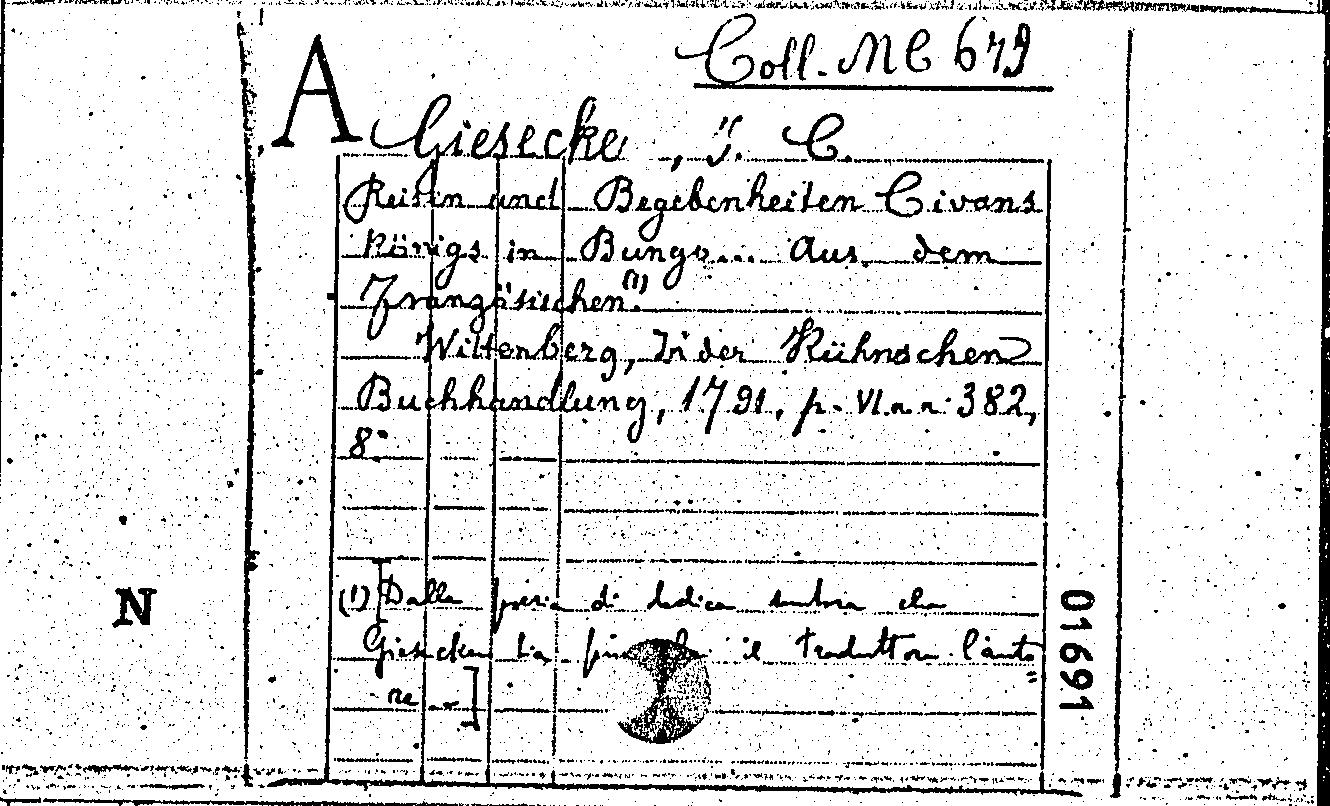 Coll. MC 679
A
Giesecke, J. C.
Reisen und Begebenheiten Civans
Königs in Bungo... Aus dem
Französischen.(1)
Wittenberg, In der Kühnschen
Buchhandlung, 1791, p. VI n n 382,
8°
(1) [Dalla poesia di dedica sembra che
Giesecke sia il traduttore l'auto
=
re]
N
01691